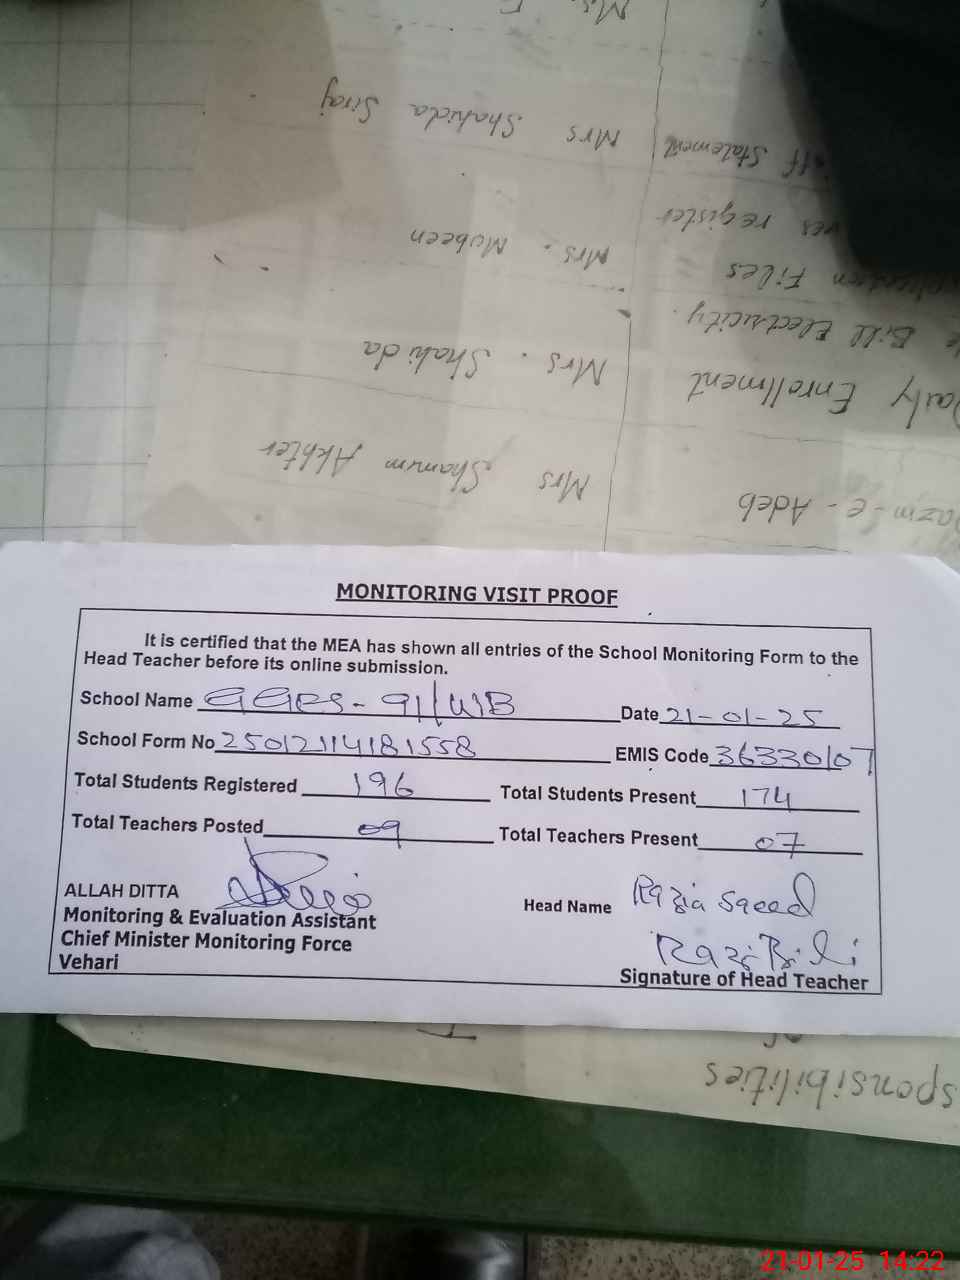 Mrs Shahida Siraj
Statement
register
Mrs. Mobeen
Files
Bill Electricity.
Mrs. Shahida
Daily Enrollment
Mrs Shamim Akhter
Bazm-e-Adeb
MONITORING VISIT PROOF
It is certified that the MEA has shown all entries of the School Monitoring Form to the
Head Teacher before its online submission.
School Name GGES-91/WB Date 21-01-25
School Form No 25012114181558 EMIS Code 36330107
Total Students Registered 196 Total Students Present 174
Total Teachers Posted 09 Total Teachers Present 07
ALLAH DITTA
Head Name Razia Saeed
Monitoring & Evaluation Assistant
Chief Minister Monitoring Force
Razi Bibi
Vehari
Signature of Head Teacher
sponsibilities
21-01-25 14:22